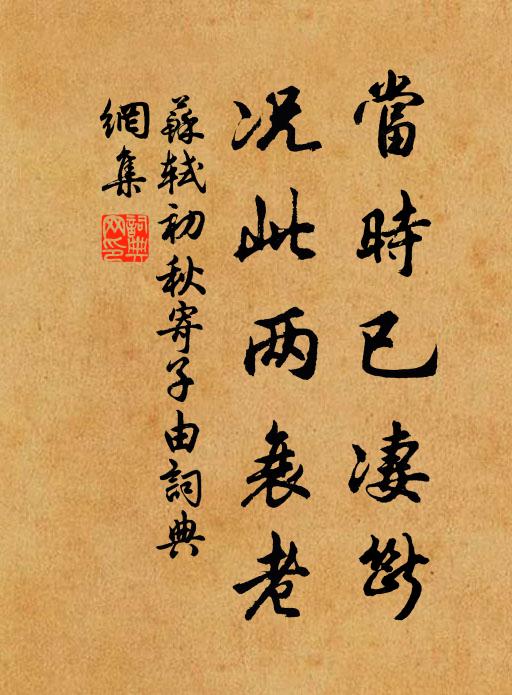 當時已凄斷
况此两衰老
蘇軾初秋寄子由詞典
網集
詞典網印